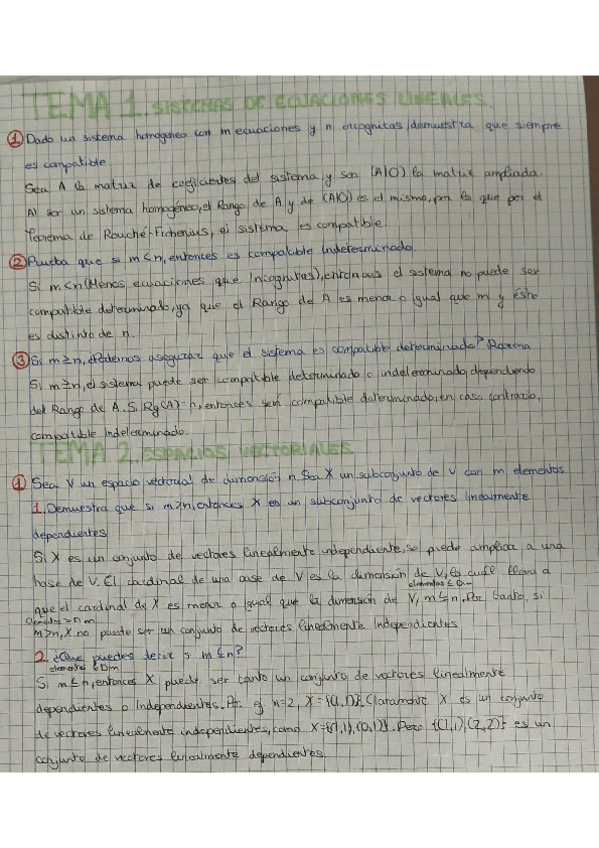 TEMA 1. SISTEMAS DE ECUACIONES LINEALES.
① Dado un sistema homogéneo con m ecuaciones y n incognitas, demuestra que siempre
es compatible.
Sea A la matriz de coeficientes del sistema, y sea (A|O) la matriz ampliada.
Al ser un sistema homogéneo, el Rango de A y de (A|O) es el mismo, por lo que por el
Teorema de Rouché-Frobenius, el sistema es compatible.
② Prueba que si m<n, entonces es compatible indeterminado.
Si m<n (Menos ecuaciones que Incognitas), entonces el sistema no puede ser
compatible determinado, ya que el Rango de A es menor o igual que m y éste
es distinto de n.
③ Si m≥n, ¿Podemos asegurar que el sistema es compatible determinado? Razona
Si m≥n, el sistema puede ser compatible determinado o indeterminado, dependiendo
del Rango de A. Si Rg(A)=n, entonces será compatible determinado, en caso contrario,
compatible Indeterminado.
TEMA 2. ESPACIOS VECTORIALES
① Sea V un espacio vectorial de dimensión n. Sea X un subconjunto de V con m elementos.
1. Demuestra que si m>n, entonces X es un subconjunto de vectores linealmente
dependientes
Si X es un conjunto de vectores linealmente independiente, se puede ampliar a una
base de V. El cardinal de una base de V es la dimensión de V, lo cual lleva a
elementos ≤ Dim
que el cardinal de X es menor o igual que la dimensión de V, m≤n. Por tanto, si
m>n, X no puede ser un conjunto de vectores linealmente Independientes
2. ¿Que puedes decir si m≤n?
Si m≤n, entonces X puede ser tanto un conjunto de vectores linealmente
dependientes o Independientes. Por ej. n=2, X={(1,1)}. Claramente X es un conjunto
de vectores linealmente independientes, como X={(1,1),(0,1)}. Pero {(1,1),(2,2)} es un
conjunto de vectores linealmente dependientes.